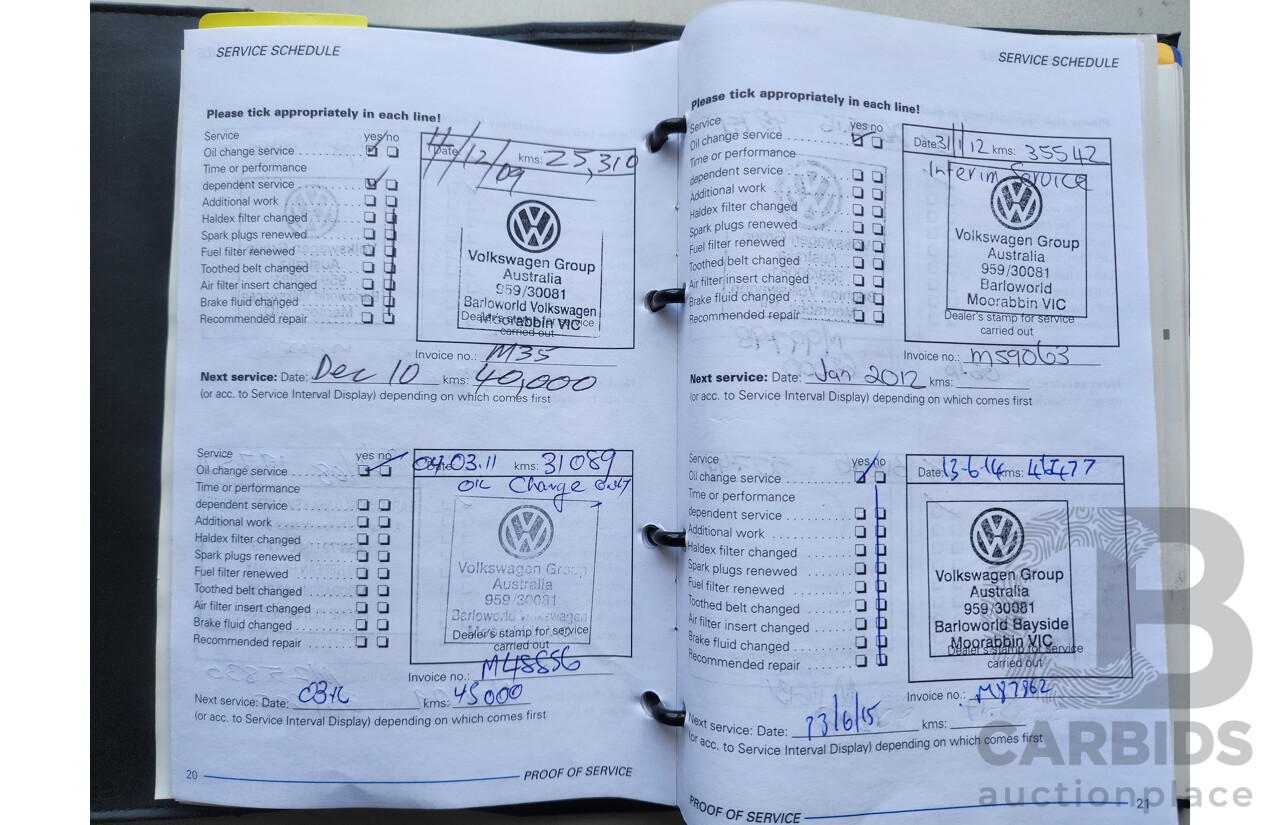 SERVICE SCHEDULE
Please tick appropriately in each line!
Service yes no
Oil change service
Time or performance
dependent service
Additional work
Haldex filter changed
Spark plugs renewed
Fuel filter renewed
Toothed belt changed
Air filter insert changed
Brake fluid changed
Recommended repair
Date 11/12/09 kms: 25,310
Volkswagen Group
Australia
959/30081
Barloworld Volkswagen
Moorabbin VIC
Dealer's stamp for service
carried out
Invoice no.: M35
Next service: Date: Dec 10 kms: 40,000
(or acc. to Service Interval Display) depending on which comes first
Service yes no
Oil change service
Time or performance
dependent service
Additional work
Haldex filter changed
Spark plugs renewed
Fuel filter renewed
Toothed belt changed
Air filter insert changed
Brake fluid changed
Recommended repair
Date 03.11 kms: 31089
OIL Change Only
Volkswagen Group
Australia
959/30081
Barloworld Volkswagen
Dealer's stamp for service
carried out
Invoice no.: M48856
Next service: Date: kms: 45000
(or acc. to Service Interval Display) depending on which comes first
20 PROOF OF SERVICE
SERVICE SCHEDULE
Please tick appropriately in each line!
Service yes no
Oil change service
Time or performance
dependent service
Additional work
Haldex filter changed
Spark plugs renewed
Fuel filter renewed
Toothed belt changed
Air filter insert changed
Brake fluid changed
Recommended repair
Date 31/1/12 kms: 35542
Interim Service
Volkswagen Group
Australia
959/30081
Barloworld
Moorabbin VIC
Dealer's stamp for service
carried out
Invoice no.: M59063
Next service: Date: Jan 2012 kms:
(or acc. to Service Interval Display) depending on which comes first
Service yes no
Oil change service
Time or performance
dependent service
Additional work
Haldex filter changed
Spark plugs renewed
Fuel filter renewed
Toothed belt changed
Air filter insert changed
Brake fluid changed
Recommended repair
Date: 13-6-14 kms:
Volkswagen Group
Australia
959/30081
Barloworld Bayside
Moorabbin VIC
Dealer's stamp for service
carried out
Invoice no.: M87862
Next service: Date: 23/6/15 kms:
(or acc. to Service Interval Display) depending on which comes first
PROOF OF SERVICE 21
B
CARBIDS
auctionplace